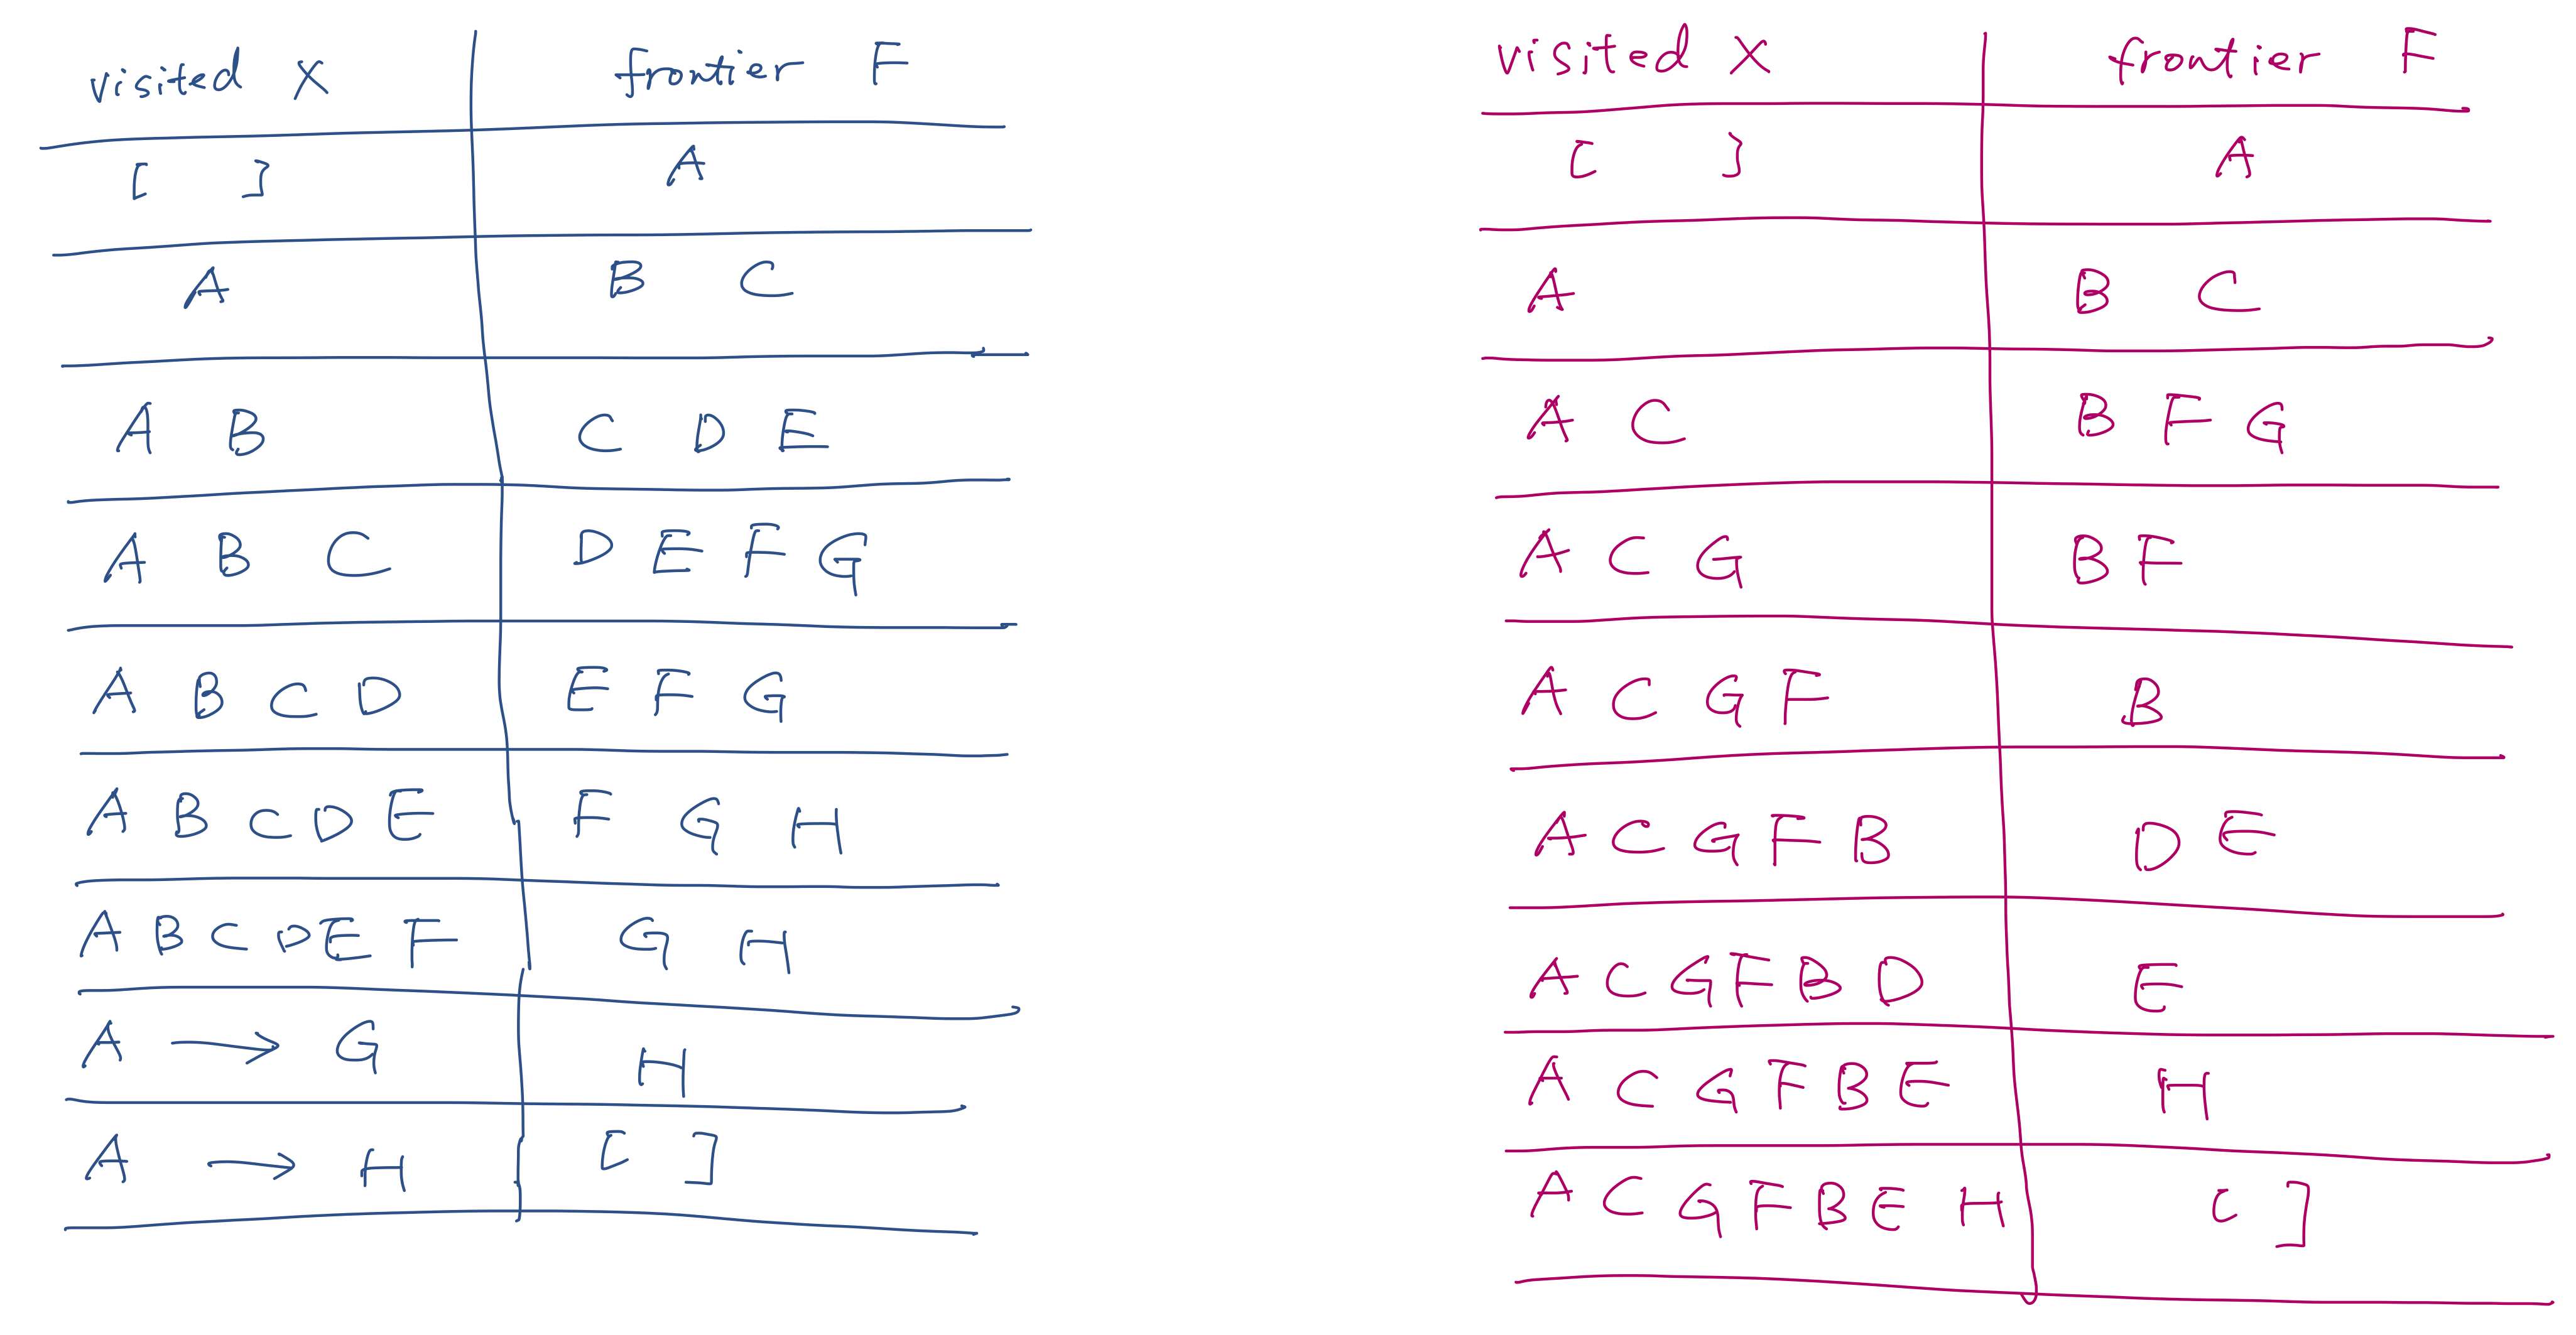 visited X frontier F
[ ] A
A B C
A B C D E
A B C D E F G
A B C D E F G
A B C D E F G H
A B C D E F G H
A → G H
A → H [ ]
visited X frontier F
[ ] A
A B C
A C B F G
A C G B F
A C G F B
A C G F B D E
A C G F B D E
A C G F B E H
A C G F B E H [ ]